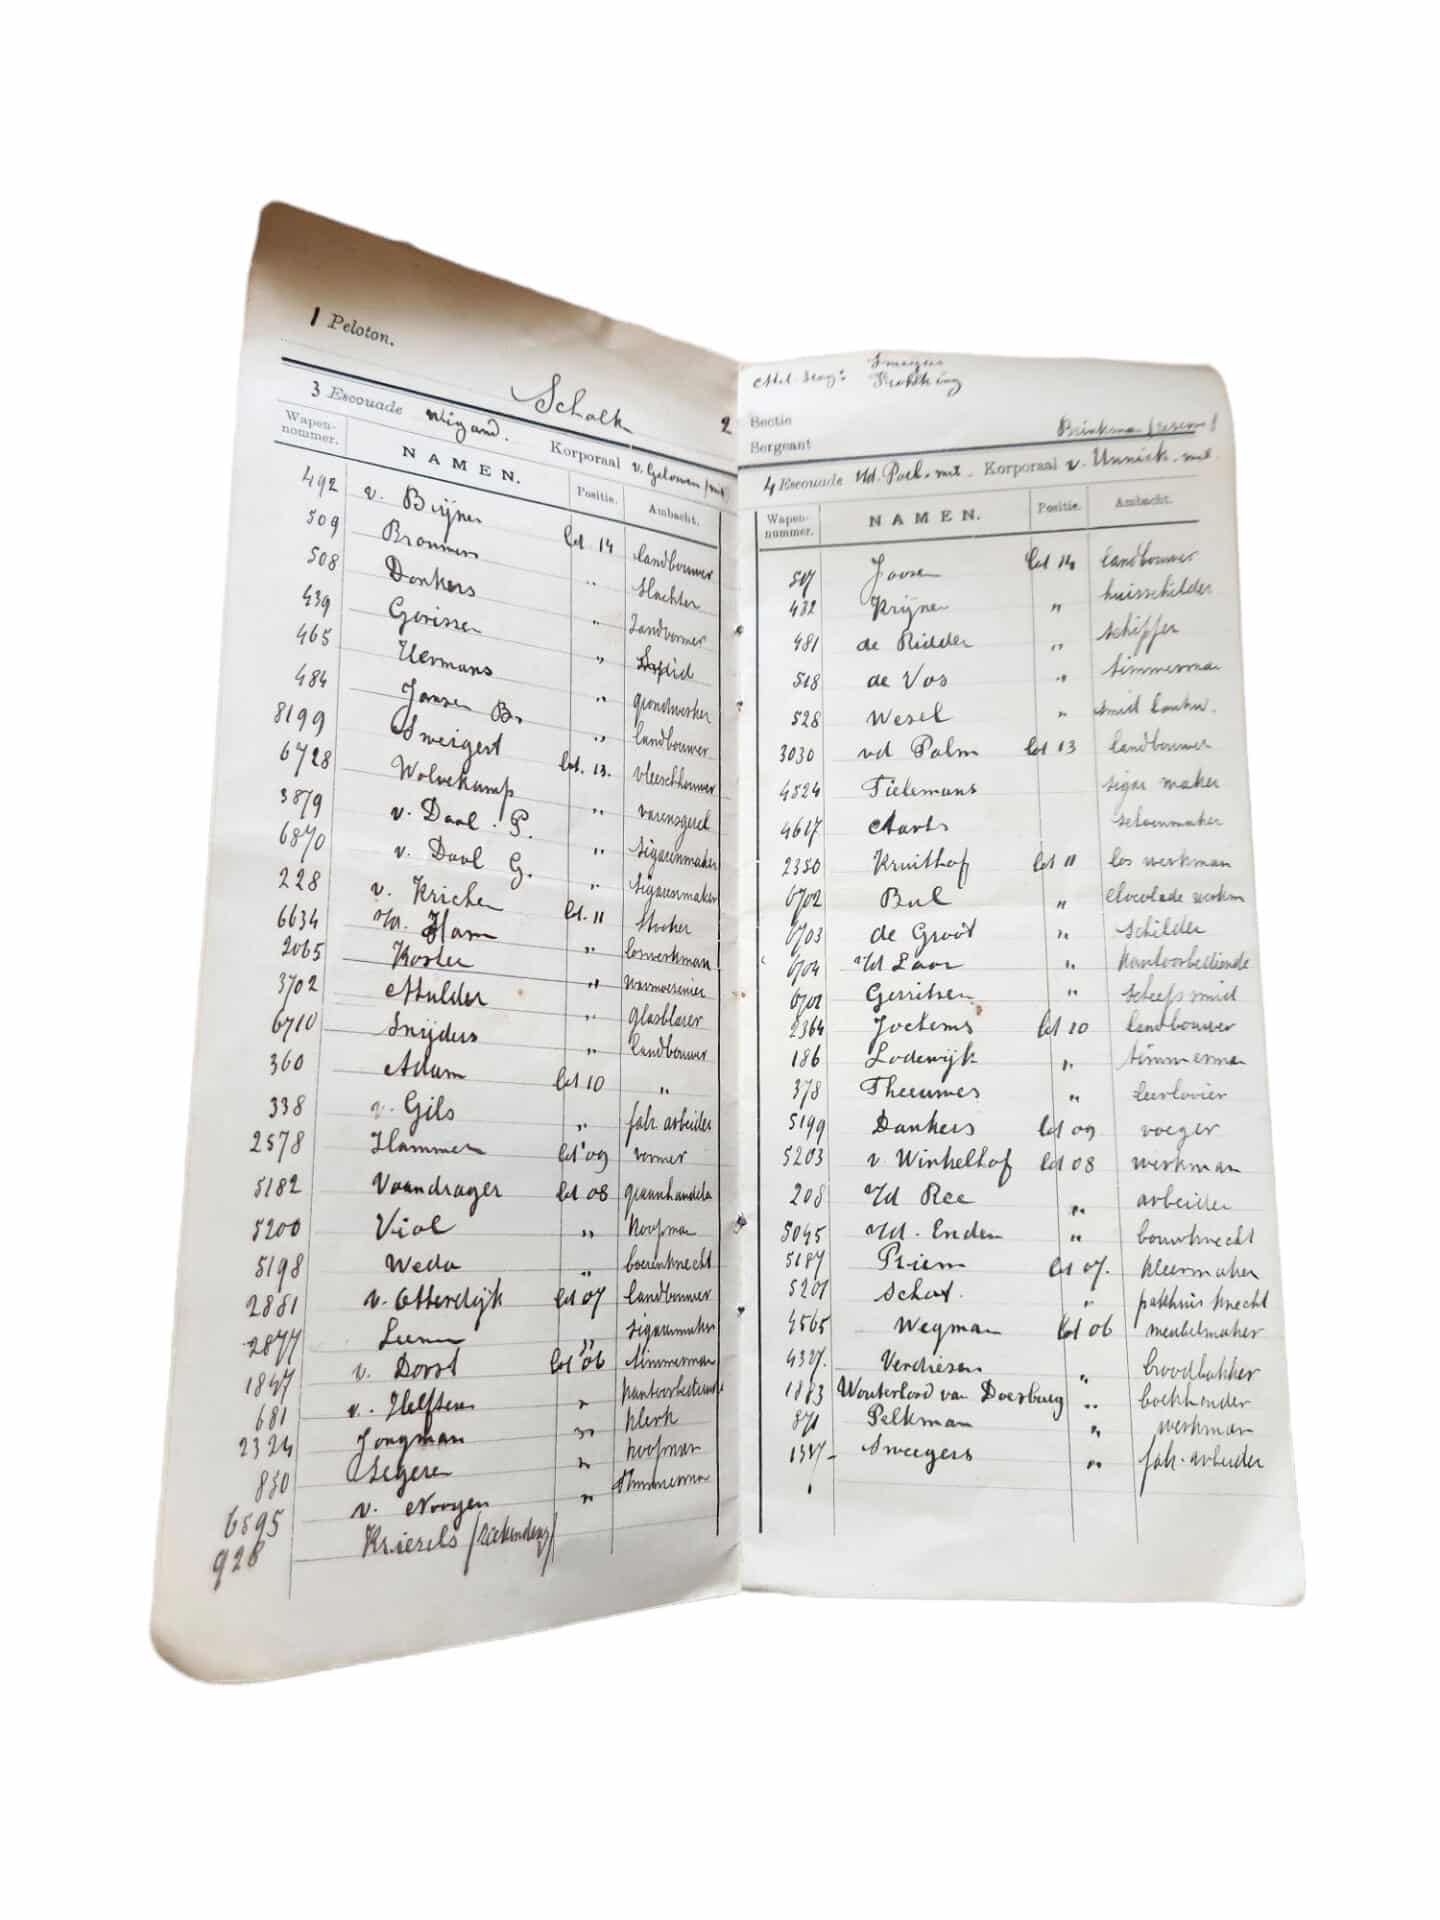 1 Peloton.
Schalk
3 Escouade Wigand. Korporaal v. Gelowen / mil
Wapen-nummer. NAMEN. Positie. Ambacht.
492 v. Beijnen lct 14 landbouwer
509 Brouwers " slachter
508 Donkers " landbouwer
439 Gerissen " smid
465 Hermans " grondwerker
484 Jansen B. " landbouwer
8199 Sweigert lct. 13. vleeschhouwer
6728 Wolvekamp "
3879 v. Daal. P. " sigarenmaker
6870 v. Daal G. " sigarenmaker
228 v. Krieken lct. 11 stoker
6634 v/d. Ham " loswerkman
2065 Koster " warmoesenier
3702 Mulder " glasblazer
6710 Snijders " landbouwer
360 Adam lct 10 "
338 v. Gils " fab. arbeider
2578 Hammen lct 09 vormer
5182 Vaandrager lct 08 graanhandela
5200 Viol " koopman
5198 Weda " boerenknecht
2881 v. Otterdijk lct 07 landbouwer
2877 Leenen " sigarenmaker
1847 v. Dorst lct 06 timmerman
681 v. Helfteren " kantoorbediende
2324 Jongman " klerk
830 Segeren " koopman
6595 v. Nooyen " timmerman
928 Kriesels /
2
Sectie
Sergeant Brinkman /
4 Escouade v/d. Poel. mil. Korporaal v. Unnick. mil.
Wapen-nummer. NAMEN. Positie. Ambacht.
507 Joosen lct 14 landbouwer
482 Krijnen " huisschilder
481 de Ridder " schipper
518 de Vos " timmerman
528 Wesel " smid bankw.
3030 vd Palm lct 13 landbouwer
4524 Tielemans sigar maker
4617 Aarts schoenmaker
2350 Kruithof lct 11 los werkman
6702 Bul " chocolade werkm
6703 de Groot " schilder
6704 v/d Laar " kantoorbediende
6701 Gerritsen " scheepssmid
2364 Jochems lct 10 landbouwer
186 Lodewijk " timmerman
378 Theeuwes " leerlooier
5199 Dankers lct 09 voeger
5203 v. Winkelhof lct 08 werkman
208 v/d Ree " arbeider
5045 v/d. Enden " bouwknecht
5187 Priem lct 07. kleermaker
5201 Schot. " pakhuis knecht
4565 Wegman lct 06 meubelmaker
4327. Verdiesen " broodbakker
1883 Wouterlood van Doesburg " boekhouder
871 Pelkman " werkman
1337- Sweegers " fab. arbeider